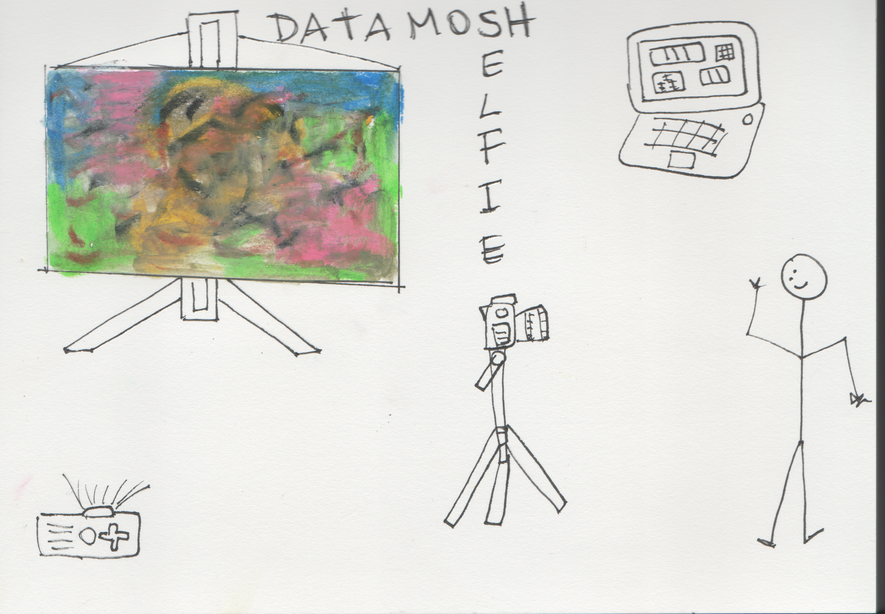 DATAMOSH
E
L
F
I
E